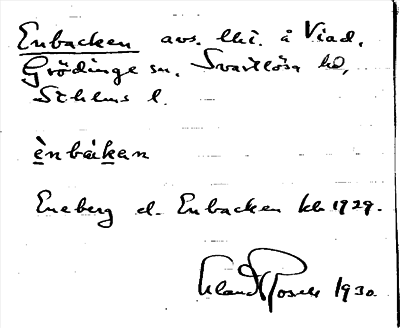 Enbacken avs. lht. å Viad,
Grödinge sn, Svartlösa hd,
Sthlms l.
ènbàkan
Eneberg el. Enbacken kb 1929.
Erland Rosell 1930